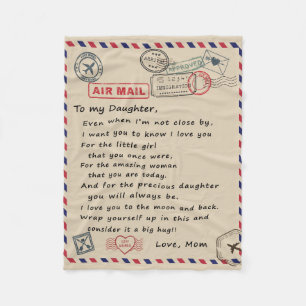 APPROVED
IMMIGRATION
AIR MAIL
To my Daughter,
Even when I'm not close by,
I want you to know I love you
For the little girl
that you once were,
For the amazing woman
that you are today.
And for the precious daughter
you will always be.
I love you to the moon and back.
Wrap yourself up in this and
consider it a big hug!!
Love, Mom